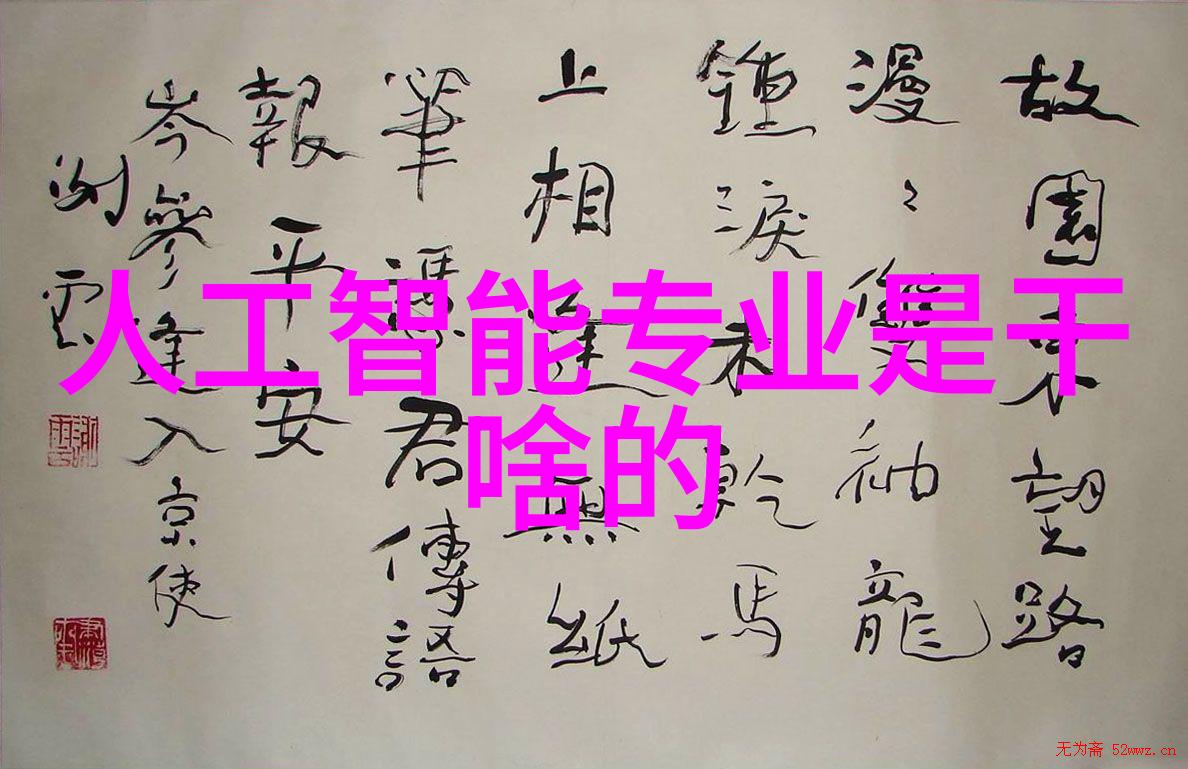 人工智能专业是干
啥的
故園東望路
漫々雙袖龍
鍾淚未乾馬
上相逢無紙
筆憑君傳語
報平安
岑參逢入京使
无为斋 52wwz.cn